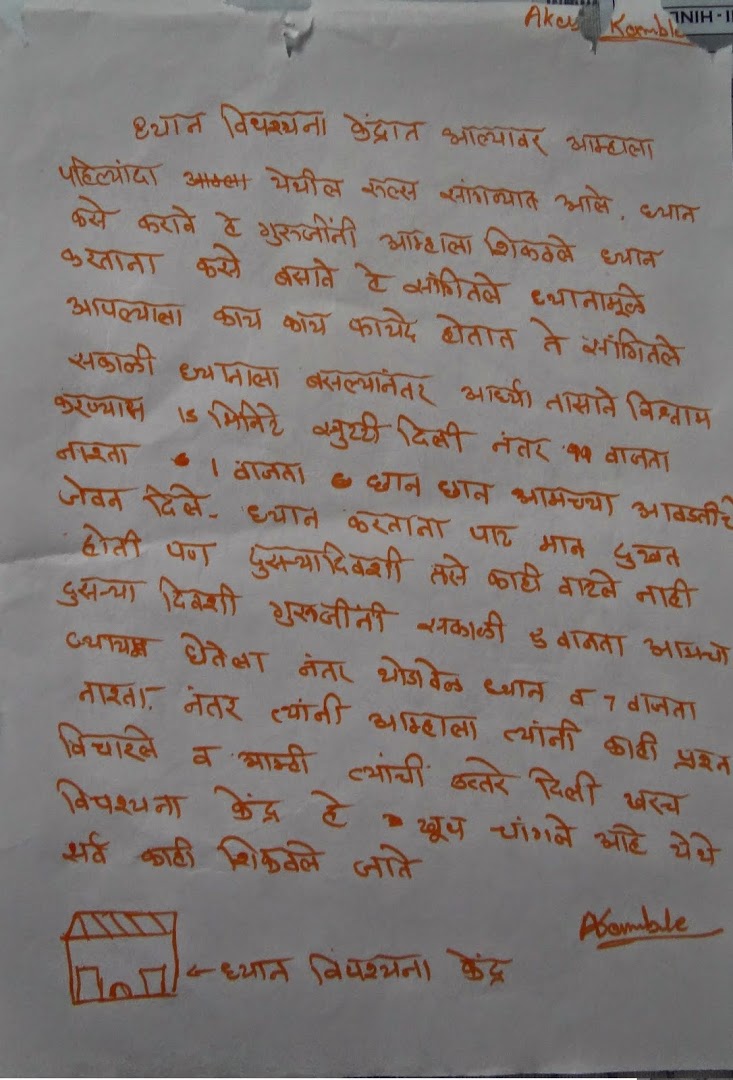 II-HINI
Kamble
ध्यान विपश्यना केंद्रात आल्यावर आम्हाला
पहिल्यांदा येथील रुल्स सांगन्यात आले. ध्यान
कसे करावे हे गुरुजींनी आम्हाला शिकवले ध्यान
करताना कसे बसावे हे सांगितले ध्यानामूळे
आपल्याला काय काय फायदे होतात ते सांगितले
सकाळी ध्यानाला बसल्यानंतर आर्ध्या तासाने विश्राम
करण्यास 15 मिनिटे सुट्टी दिली नंतर ११ वाजता
नास्ता 1 वाजता छान छान आमच्या आवडीचे
जेवन दिले. ध्यान करताना पाट मान दुखत
होती पण दुसऱ्यादिवशी तसे काही वाटले नाही
दुसऱ्या दिवशी गुरुजींनी सकाळी 5 वाजता आमचा
व्यायाम घेतला नंतर थोडावेळ ध्यान व 7 वाजता
नास्ता. नंतर त्यांनी आम्हाला त्यांनी काही प्रश्न
विचारले व आम्ही त्यांची उत्तरे दिली खरच
विपश्यना केंद्र हे खूप चांगले आहे येथे
सर्व काही शिकवले जाते
AKamble
←ध्यान विपश्यना केंद्र